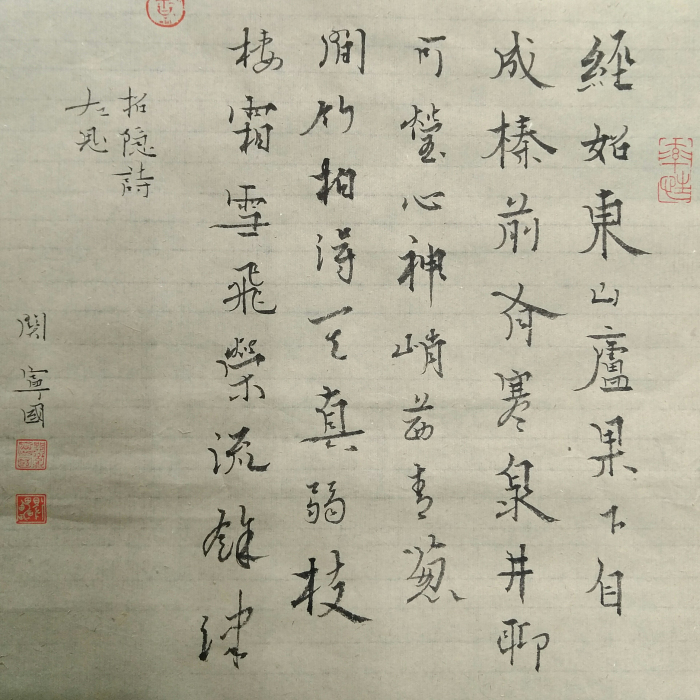 經始東山廬果下自
成榛前有寒泉井聊
可瑩心神峭茜青蔥
間竹柏得其真弱枝
棲霜雪飛榮流餘津
招隐詩
左思
関寧國